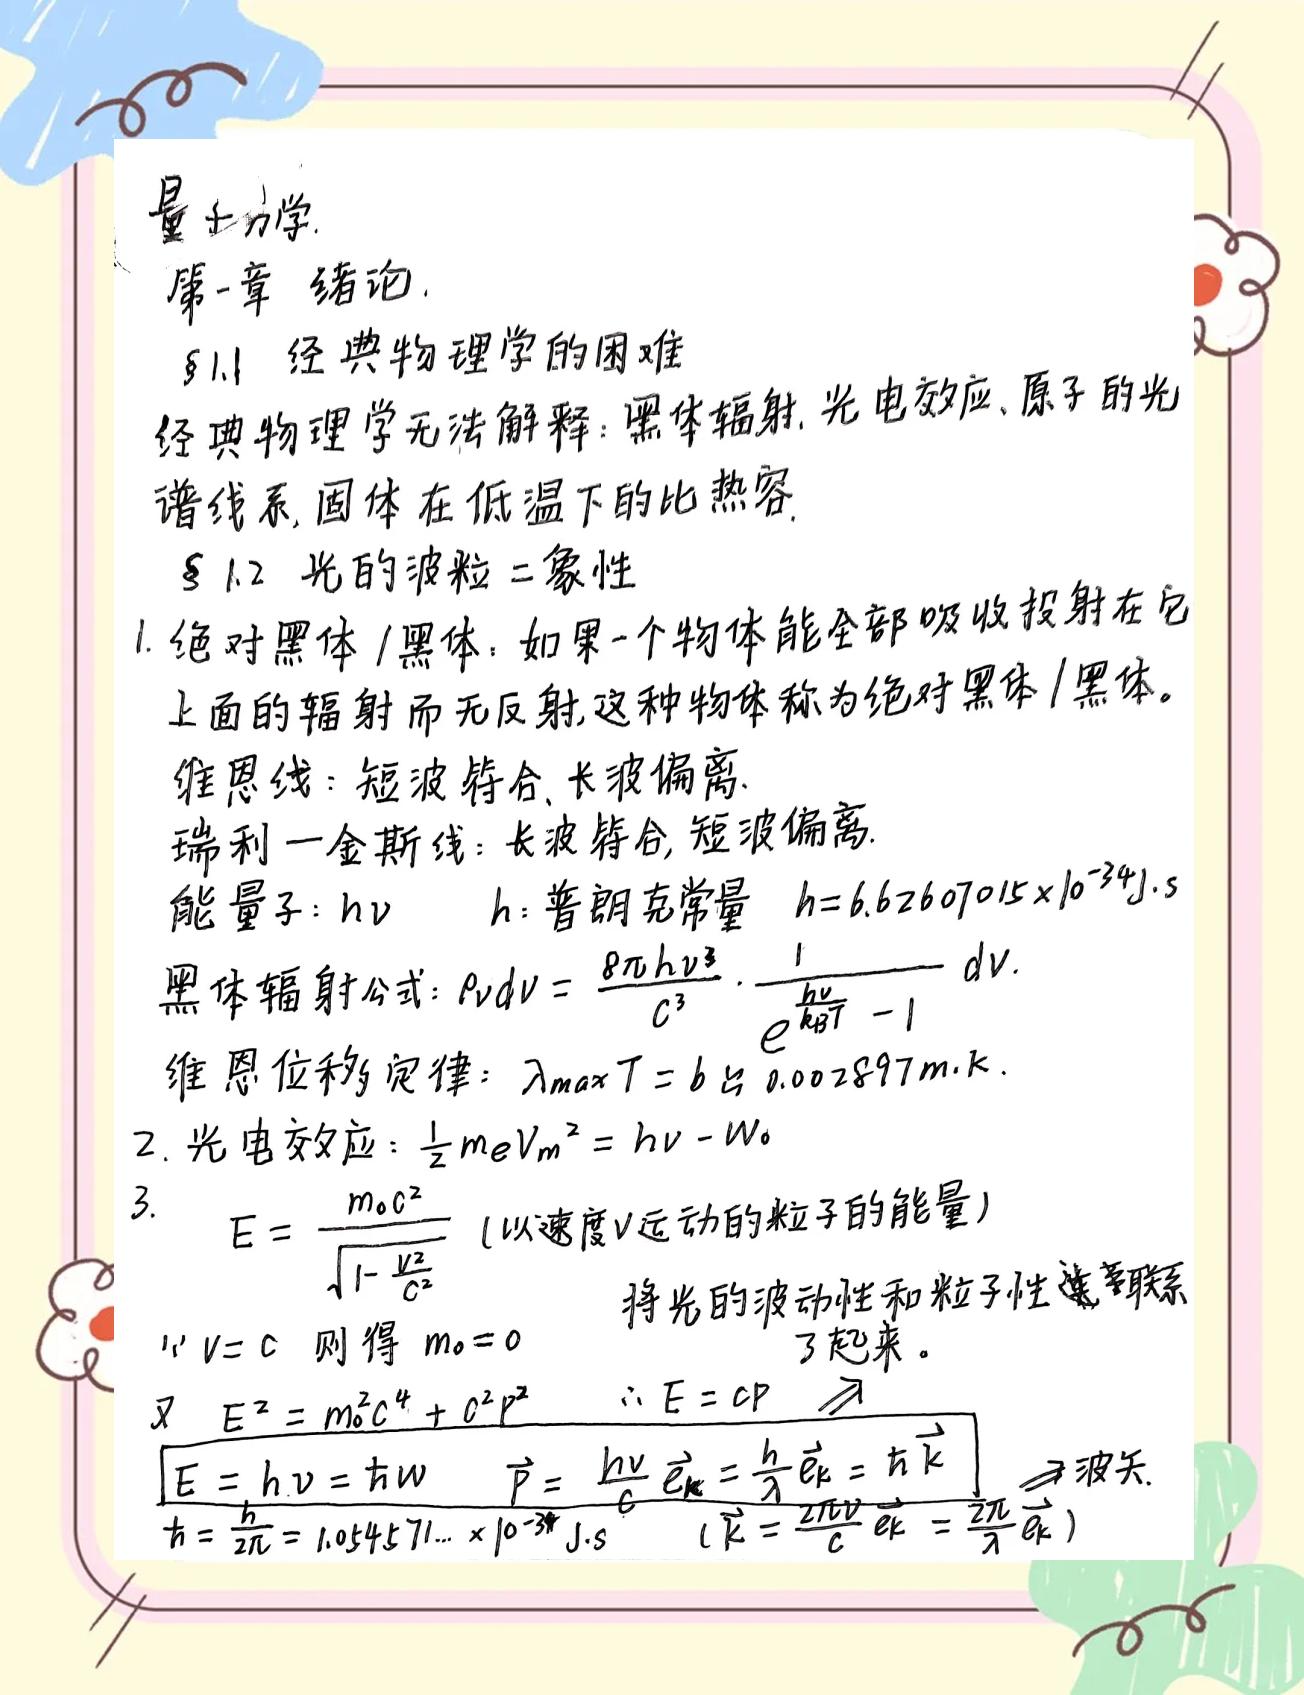 量子力学.
第一章 绪论.
§1.1 经典物理学的困难
经典物理学无法解释:黑体辐射、光电效应、原子的光
谱线系,固体在低温下的比热容.
§1.2 光的波粒二象性
1. 绝对黑体/黑体:如果一个物体能全部吸收投射在它
上面的辐射而无反射,这种物体称为绝对黑体/黑体。
维恩线:短波符合、长波偏离.
瑞利一金斯线:长波符合,短波偏离.
能量子:hν h:普朗克常量 h=6.62607015×10⁻³⁴J·s
黑体辐射公式:ρνdν = 8πhν³/c³ · 1/(e^(hν/kBT) - 1) dν.
维恩位移定律:λmaxT = b ≌ 0.002897m·k.
2. 光电效应:1/2 meVm² = hν - W₀
3. E = m₀c²/√(1 - v²/c²) (以速度v运动的粒子的能量)
将光的波动性和粒子性联系
∵ v = c 则得 m₀ = 0 了起来。
又 E² = m₀²c⁴ + c²p² ∴ E = cp ⇗
E = hν = ħw p⃗ = hν/c e⃗k = h/λ e⃗k = ħk⃗ ⇗波矢.
ħ = h/2π = 1.054571... ×10⁻³⁴ J·s (k⃗ = 2πν/c e⃗k = 2π/λ e⃗k)